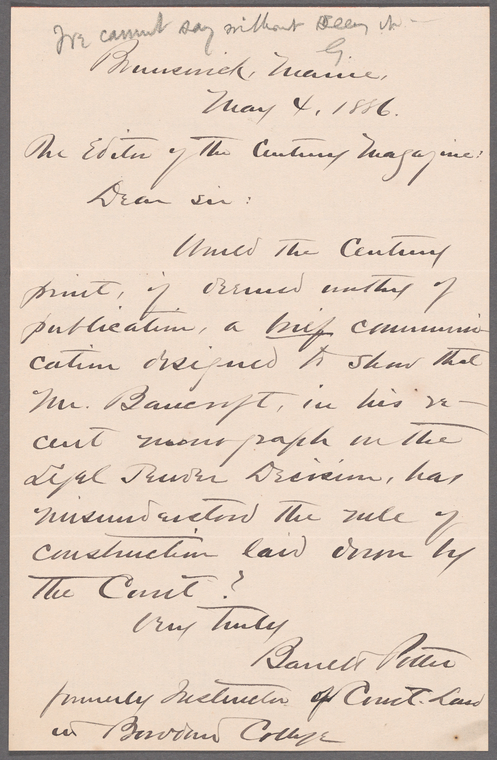 We cannot say without seeing it -
G
Brunswick, Maine,
May 4, 1886.
The Editor of the Century Magazine:
Dear Sir:
Would the Century
print, if deemed worthy of
publication, a brief communi-
cation designed to show that
Mr. Bancroft, in his re-
cent monograph on the
Legal Tender Decision, has
misunderstood the rule of
construction laid down by
the Court?
Very truly
Barrett Potter
formerly Instructor of Const. Law
in Bowdoin College